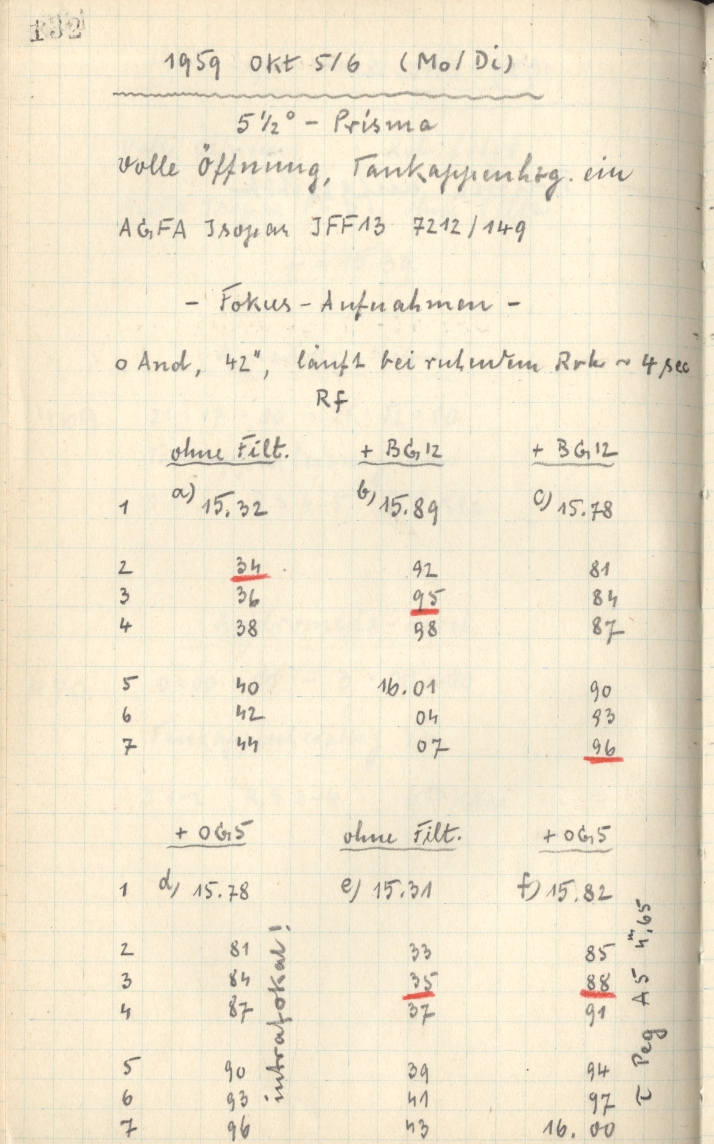 132
1959 Okt 5/6 (Mo/Di)
5 1/2° - Prisma
Volle Öffnung, Taukappenhzg. ein
AGFA Isopan IFF13 7212/149
- Fokus - Aufnahmen -
o And, 42", läuft bei ruhendem Rrk ~ 4 sec
Rf
ohne Filt. + BG12 + BG12
1 a) 15.32 b) 15.89 c) 15.78
2 34 92 81
3 36 95 84
4 38 98 87
5 40 16.01 90
6 42 04 93
7 44 07 96
+ OG5 ohne Filt. + OG5
1 d) 15.78 e) 15.31 f) 15.82
2 81 33 85
3 84 35 88
4 87 37 91
5 90 39 94
6 93 41 97
7 96 43 16.00
intrafokal!
τ Peg A5 4,ᵐ65